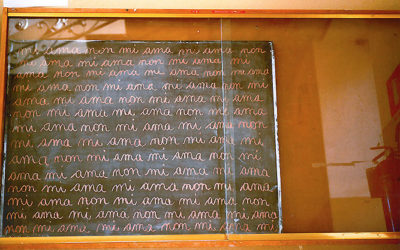 mi ama non mi ama mi ama non
mi ama mi ama non mi ama mi
ama non mi ama mi ama non mi ama
mi ama non mi ama mi ama non
mi ama non mi ama mi ama mi
ama mi ama non mi ama mi ama
mi ama non mi ama non mi ama
mi ama non mi ama mi ama non
ama non mi ama mi ama non mi
ama mi ama non mi ama mi ama
non mi ama mi ama non mi ama
mi ama non mi ama mi ama non
mi ama mi ama non mi ama mi ama
non mi ama mi ama non mi ama